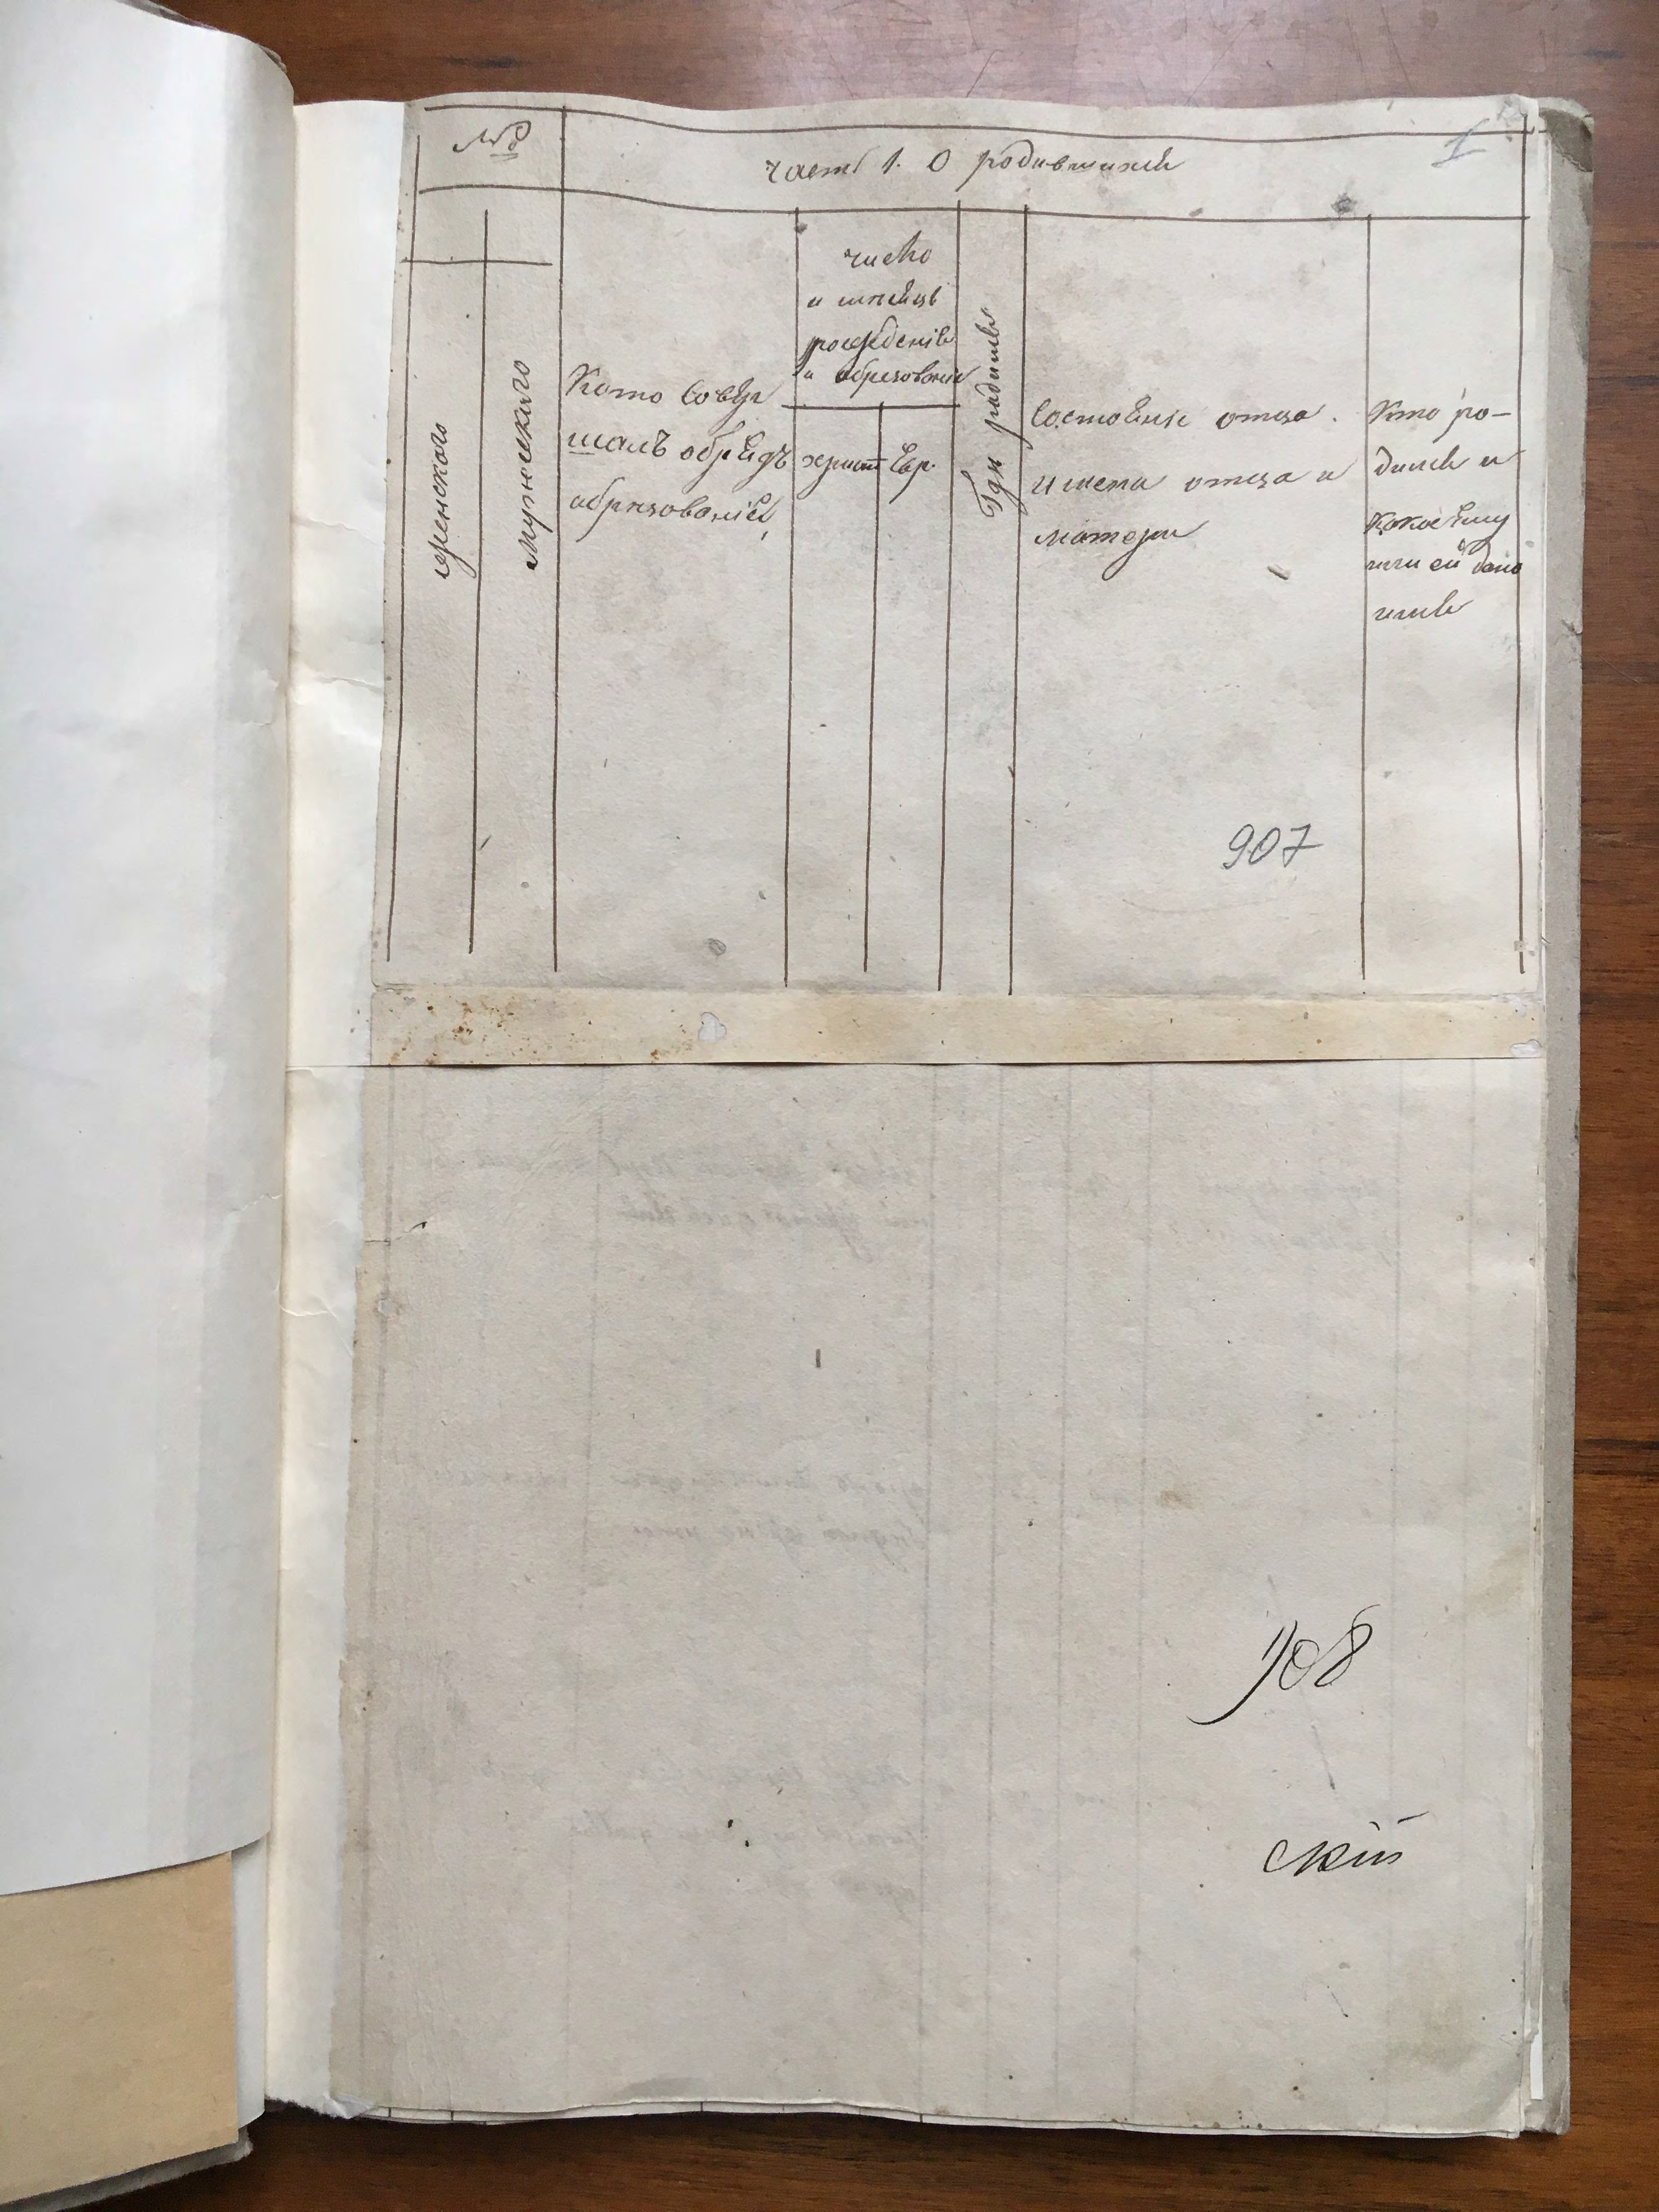 №
часть 1. О родившихся
1
женского
мужескаго
Кто совер
шалъ обрядъ
обрѣзованія
число
и мѣсяцъ
рожденія
и обрезования
христ
Евр.
Гдѣ родился
Состояніе отца.
имена отца и
матери
Кто ро-
дился и
какое ему
или ей дано
имя
907
908
скій